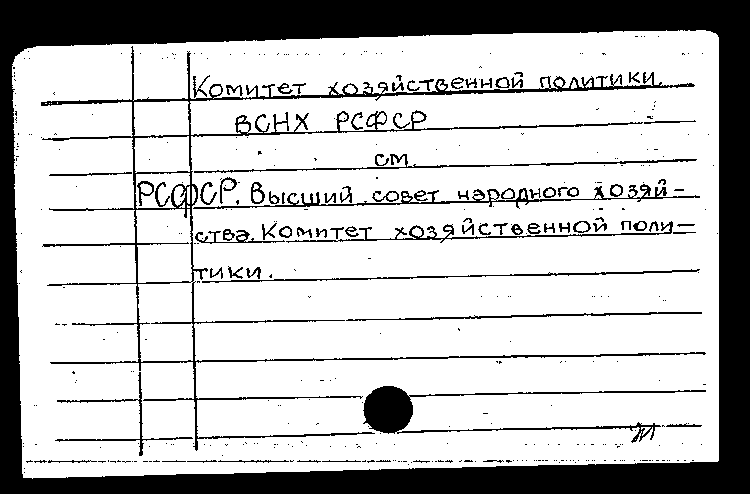 Комитет хозяйственной политики.
ВСНХ РСФСР
см.
РСФСР. Высший совет народного хозяй-
ства. Комитет хозяйственной поли-
тики.